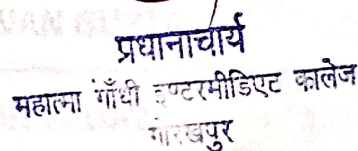 प्रधानाचार्य
महात्मा गाँधी इण्टरमीडिएट कालेज
गोरखपुर